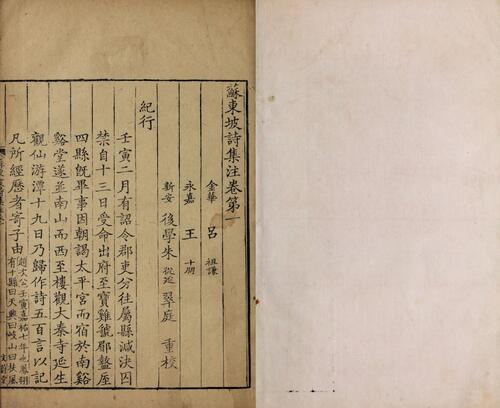 蘇東坡詩集注卷第一
金華 呂 祖謙
永嘉 王 十朋
新安 後學朱 從延 翠庭 重校
紀行
壬寅二月有詔令郡吏分往屬縣減決囚
禁自十三日受命出府至寶雞虢郿盩厔
四縣既畢事因朝謁太平宮而宿於南谿
谿堂遂並南山而西至樓觀大秦寺延生
觀仙游潭十九日乃歸作詩五百言以記
凡所經歷者寄子由
趙次公壬寅嘉祐七年也鳳翔
有十縣曰天興曰岐山曰扶風